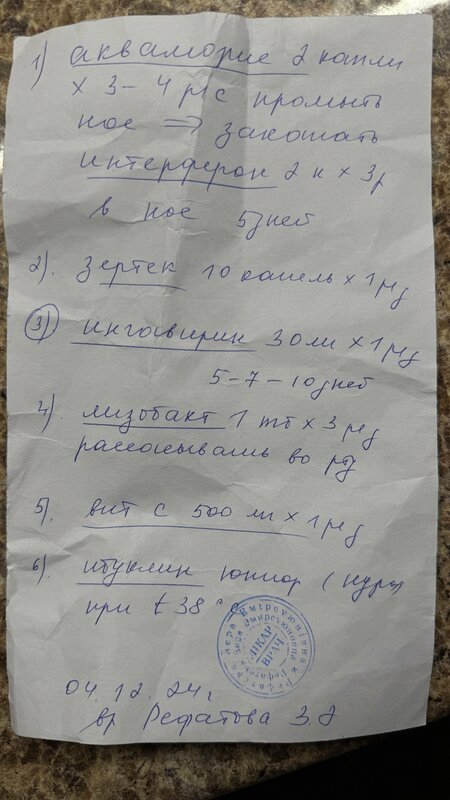 1) аквамарис 2 капли
х 3-4 р/с промыть
нос => закапать
интерферон 2 к х 3р
в нос 5 дней
2). зертек 10 капель х 1 р/д
3) ингавирин 30 мл х 1 р/д
5-7-10 дней
4). лизобакт 1 тб х 3 р/д
рассасывать во рту
5). вит с 500 мг х 1 р/д
6). ибуклин юниор
при t 38°с
ЛІКАР
ВРАЧ
04.12.24г
вр Рефатова З.Э